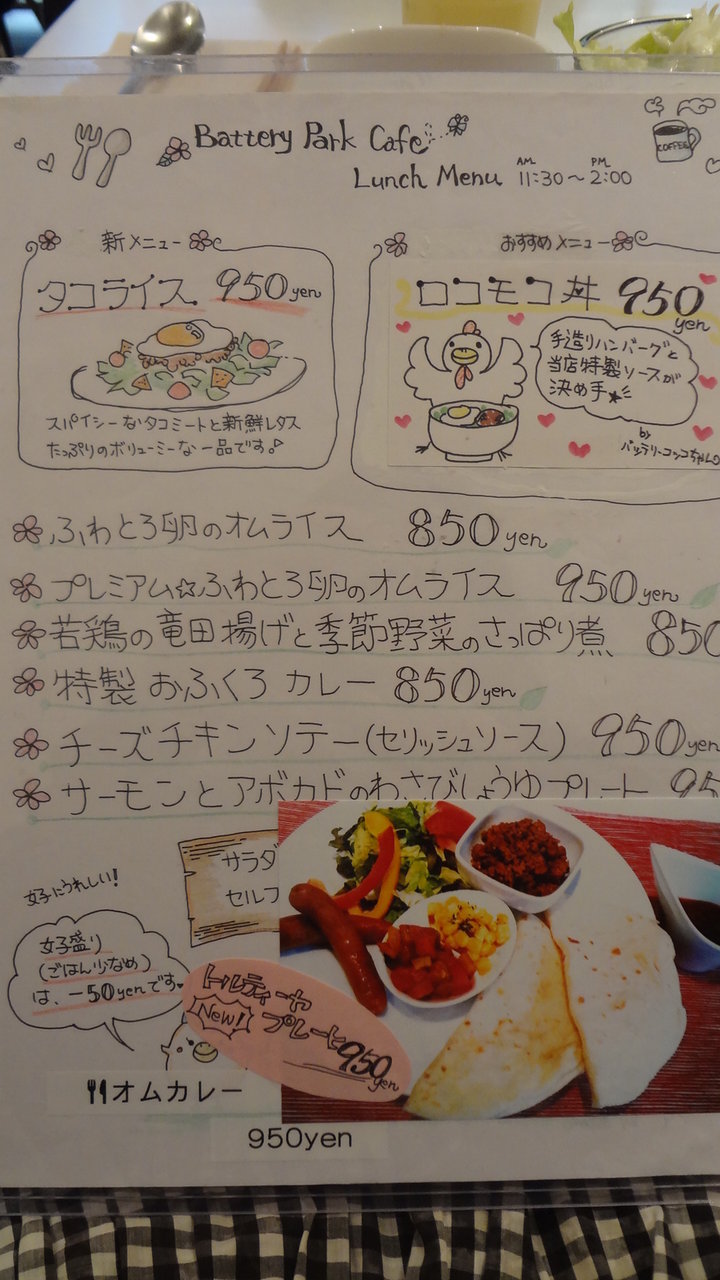 Battery Park Cafe
COFFEE
Lunch Menu AM 11:30〜PM 2:00
新メニュー
タコライス 950yen
スパイシーなタコミートと新鮮レタス
たっぷりのボリューミーな一品です。
おすすめメニュー
ロコモコ丼 950yen
手造りハンバーグと
当店特製ソースが
決め手★
by
バッテリーコッコちゃん
ふわとろ卵のオムライス 850yen
プレミアム☆ふわとろ卵のオムライス 950yen
若鶏の竜田揚げと季節野菜のさっぱり煮 850
特製 おふくろ カレー 850yen
チーズチキンソテー(セリッシュソース) 950yen
サーモンとアボカドのわさびしょうゆプレート 95
サラダ
セルフ
女子にうれしい!
女子盛り
(ごはん少なめ)
は、-50yenです。
トルティーヤ
New! プレート 950yen
オムカレー
950yen